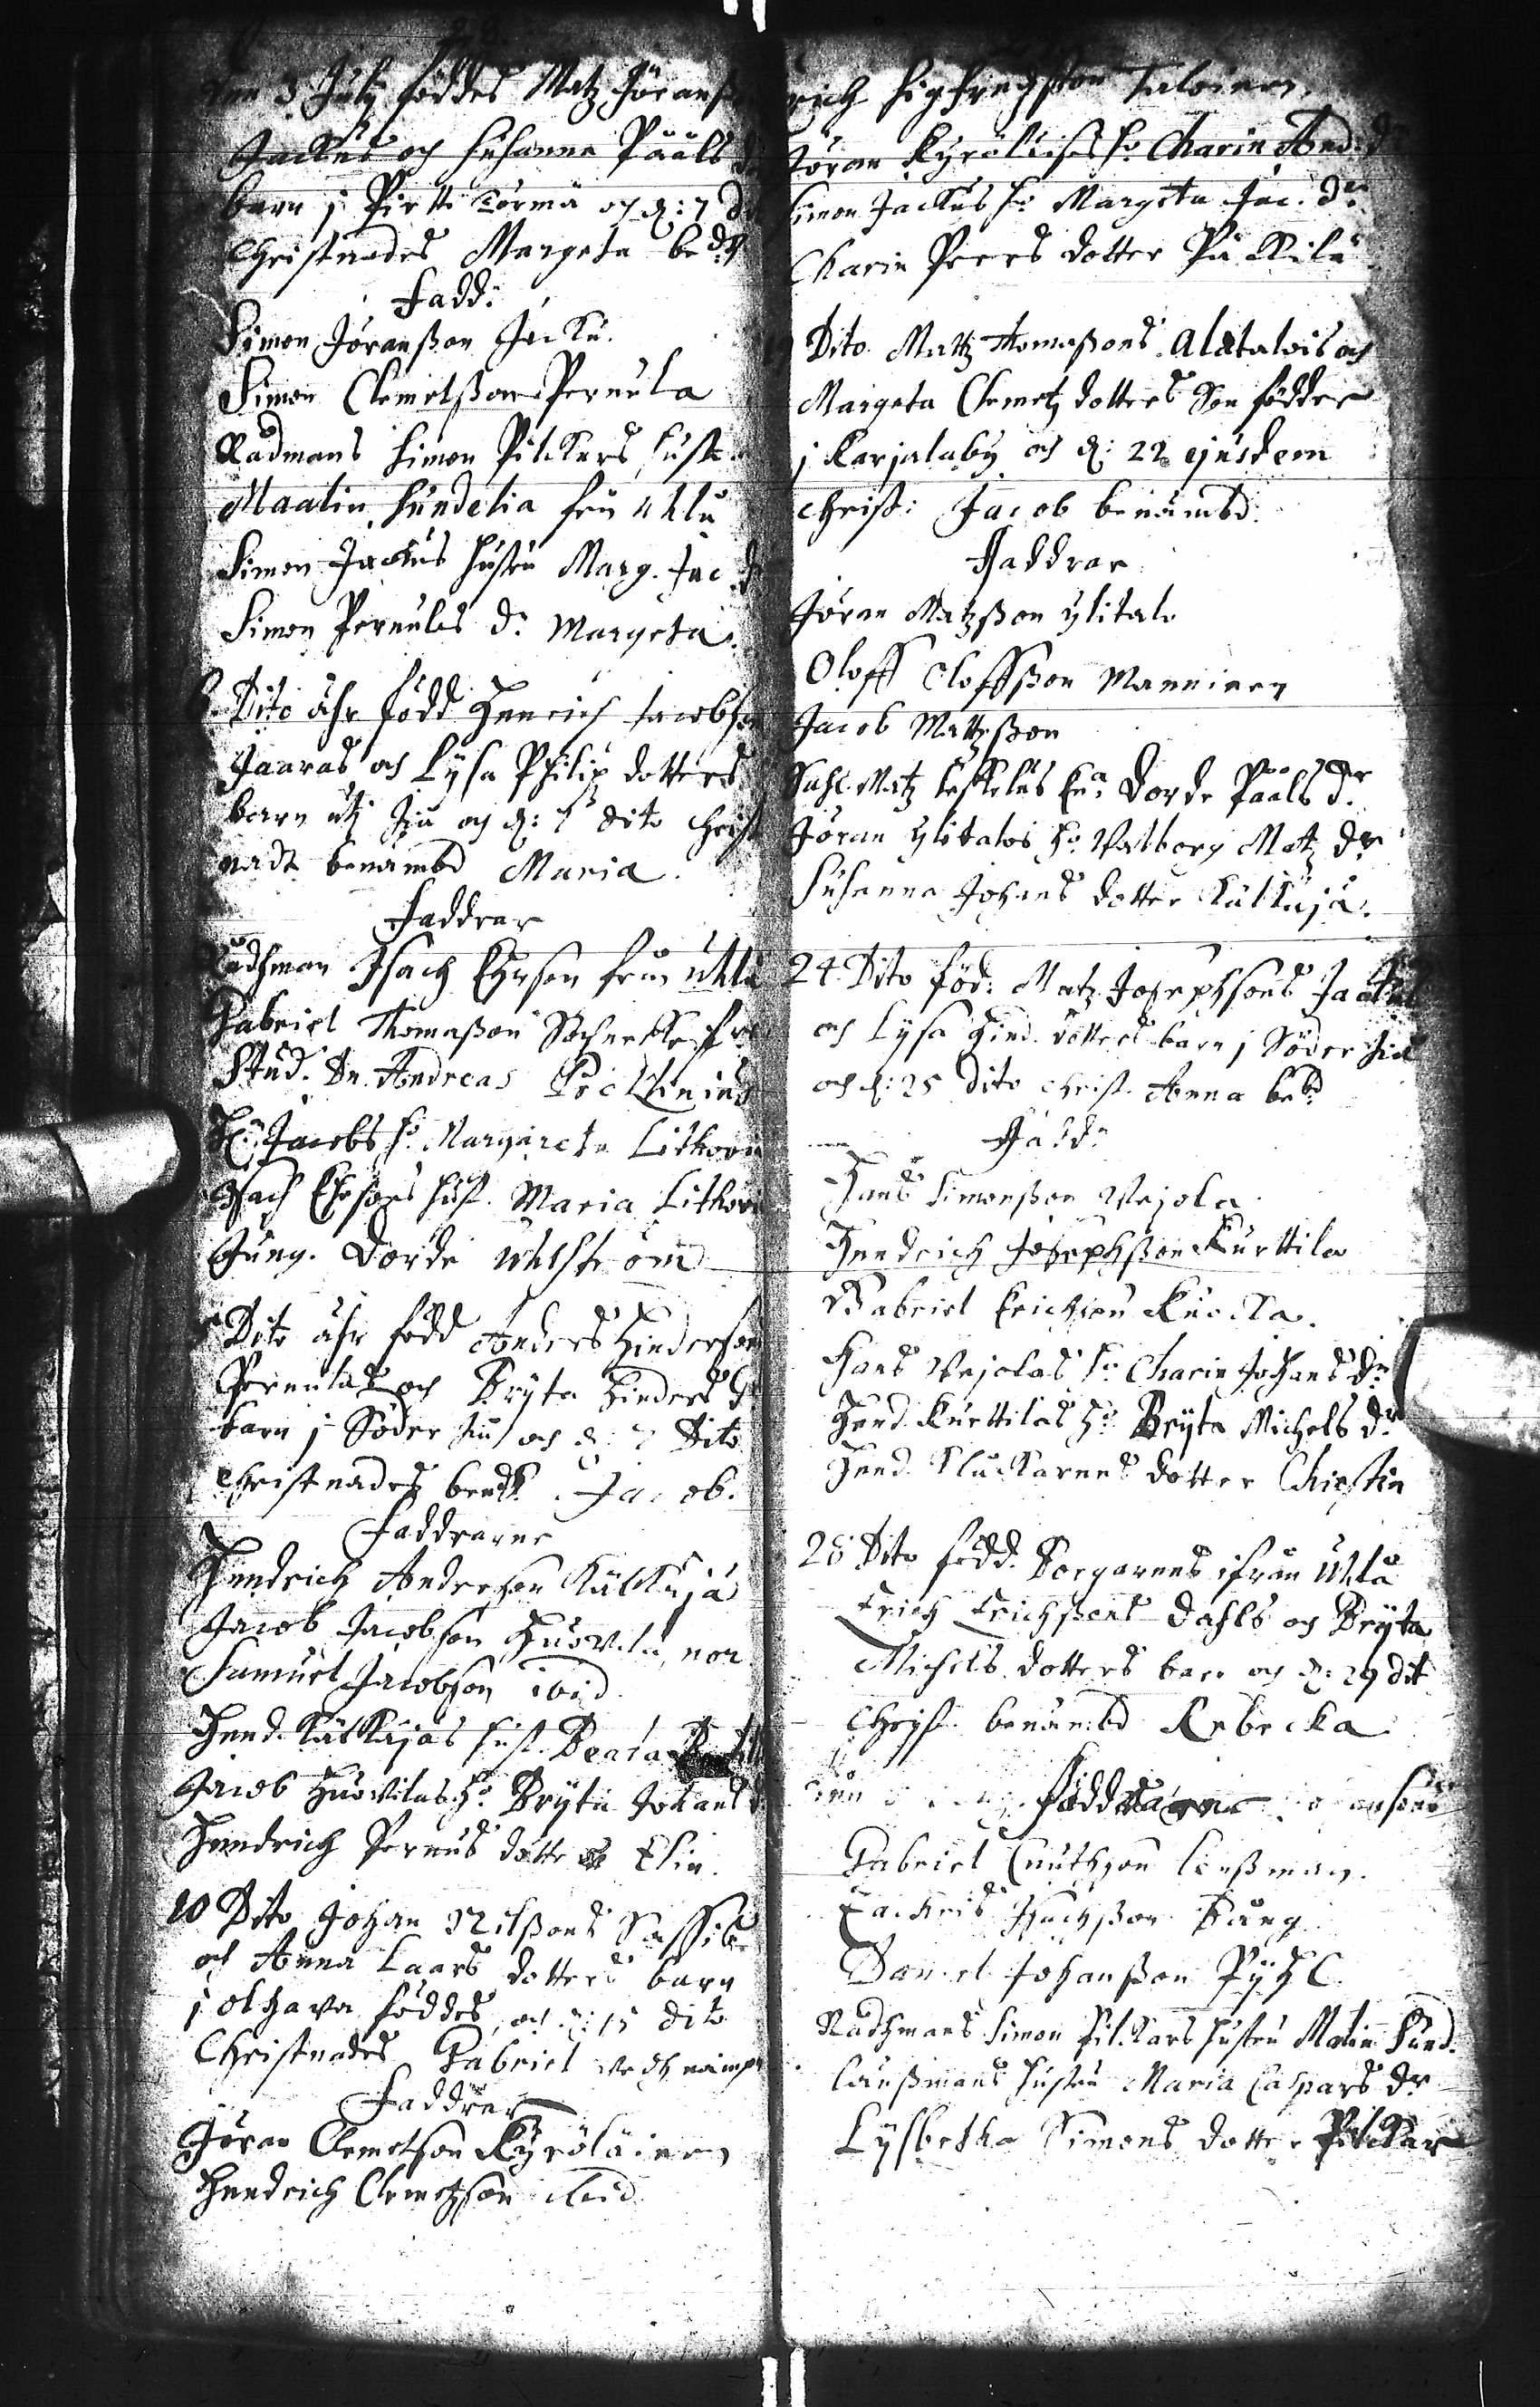 3 July föddes Matz Jöranß
Jackus och Susanna Pååls
barn j Pirtti törmä och d: 7
Christnades Margeta be:d
Fadd:
Simon Jöranßon Jacku
Simon Clemetßon Pernula
Rådmans Simon Pitckars hust
Maalin Sundelia från Uhlu
Simon Jackus hustru Marg. Jac
Simon Pernulas d: Margeta
Dito ähr född Henrich Jacobson
Jaaras och Lysa Philip dotters
barn utj Iju och d: dito Christ
nadt benämbd Maria.
Faddrar
Rådhman Isach Ehrson från Uhlu
Gabriel Thomaßon
Stud. Dn. Andreas
H: Jacobs h: Margareta Lithovi
Isach Ehrsons hust. Maria Lithovi
Jung. Dorde
Dito ähr född Anders Hinderson
Pernulas och Bryta Hinders
barn j Söder Iju och d: 7 Dito
Christnades bendt. Jacob.
Faddrarne
Hendrich Anderson Kälkäjä
Jacob Jacobson Huovila, nor
Samuel Jacobson ibid
Hend. Kälkäjäs hust. Beata
Jacob Huovilas h: Bryta Johans
Hendrich Pernus dotter Elin.
10 Dito Johan Nilßons
och Anna Laars dotters barn
j olhava föddes, och d: 15 dito
Christnades Gabriel
Faddrar
Göran Clemetson Kyröläinen
Hendrich Clemetzson ibid.
rich Sigfredßon Taloinen
Jöran Kyröläises h: Charin And: d
Simon Jackus h: Margeta Jac. dr
Charin Peers dotter På Kila
Dito Mattz Thomaßons Alatalois och
Margeta Clemetz dotters Son födder
j Karjalaby och d: 22 ejusdem
christ: Jacob benämbd.
Faddrar
Jöran Matzßon Ylitalo
Oloff Oloffßon Manninen
Jacob Mattzßon
Sahl. Matz Keskilus Dorde Pååls dr
Jöran Ylitalos h: Valborg Matz dr
Susanna Johans dotter Kälkäjä.
24 Dito föd: Matz Josephsons
och Lysa Hind. dotters barn j Söder Iju
och d: 25 dito christ. Anna be:d
Fadd:
Hans Simonßon Vejola
Hendrich Josephßon Kurttila
Gabriel Erichson
Hans Vejolas h: Charin Johans dr
Hend. Kurttilas h: Bryta Michels dr
Hend. Kluckarens dotter Chirstin
28 Dito född. Borgarens ifrån Uhlu
Erich Erichßons Dahls och Bryta
Michels dotters barn och d: 29 dit
Christ. benämbd Rebecka
Faddrarne
Gabriel Cnuthson länßman.
Zachris Isachßon Kung
Daniel Johanßon
Rådhmans Simon Pitckars hustru Malin Sund.
länßmans hustru Maria Caspars dr
Lysbetha Simons dotter Pitckar